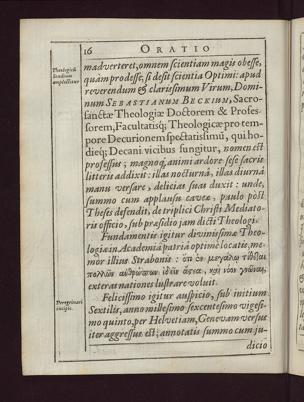 16 ORATIO
madverteret, omnem scientiam magis obesse,
quàm prodesse, si desit scientia Optimi: apud
reverendum & clarissimum Virum, Domi-
num SEBASTIANUM BECKIUM, Sacro-
sanctæ Theologiæ Doctorem & Profes-
sorem, Facultatisq; Theologicæ pro tem-
pore Decurionem spectatissimū, qui ho-
dieq; Decani vicibus fungitur, nomen est
professus; magnoq; animi ardore sese sacris
litteris addixit: illas nocturnâ, illas diurnâ
manu versare, delicias suas duxit: unde,
summo cum applausu caveæ, paulo pòst
Theses defendit, de triplici Christi Mediato-
ris officio, sub præsidio jam dicti Theologi.
Fundamentis igitur divinissimæ Theo-
logiæ in Academiâ patriâ optimè locatis, me-
mor illius Strabonis:
exteras nationes lustrare voluit.
Felicissimo igitur auspicio, sub initium
Sextilis, anno millesimo sexcentesimo vigesi-
mo quinto, per Helvetiam, Genevam versus
iter aggressus est; annotatis summo cum ju-
dicio
Theologicū
studium
amplectitur
Peregrinari
incipit.